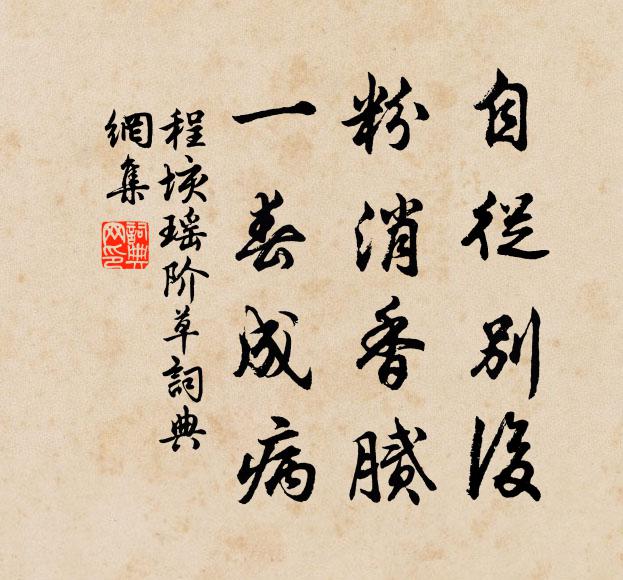 自從別後
粉消香膩
一春成病
程垓瑶阶草詞典
網集
詞典
网印